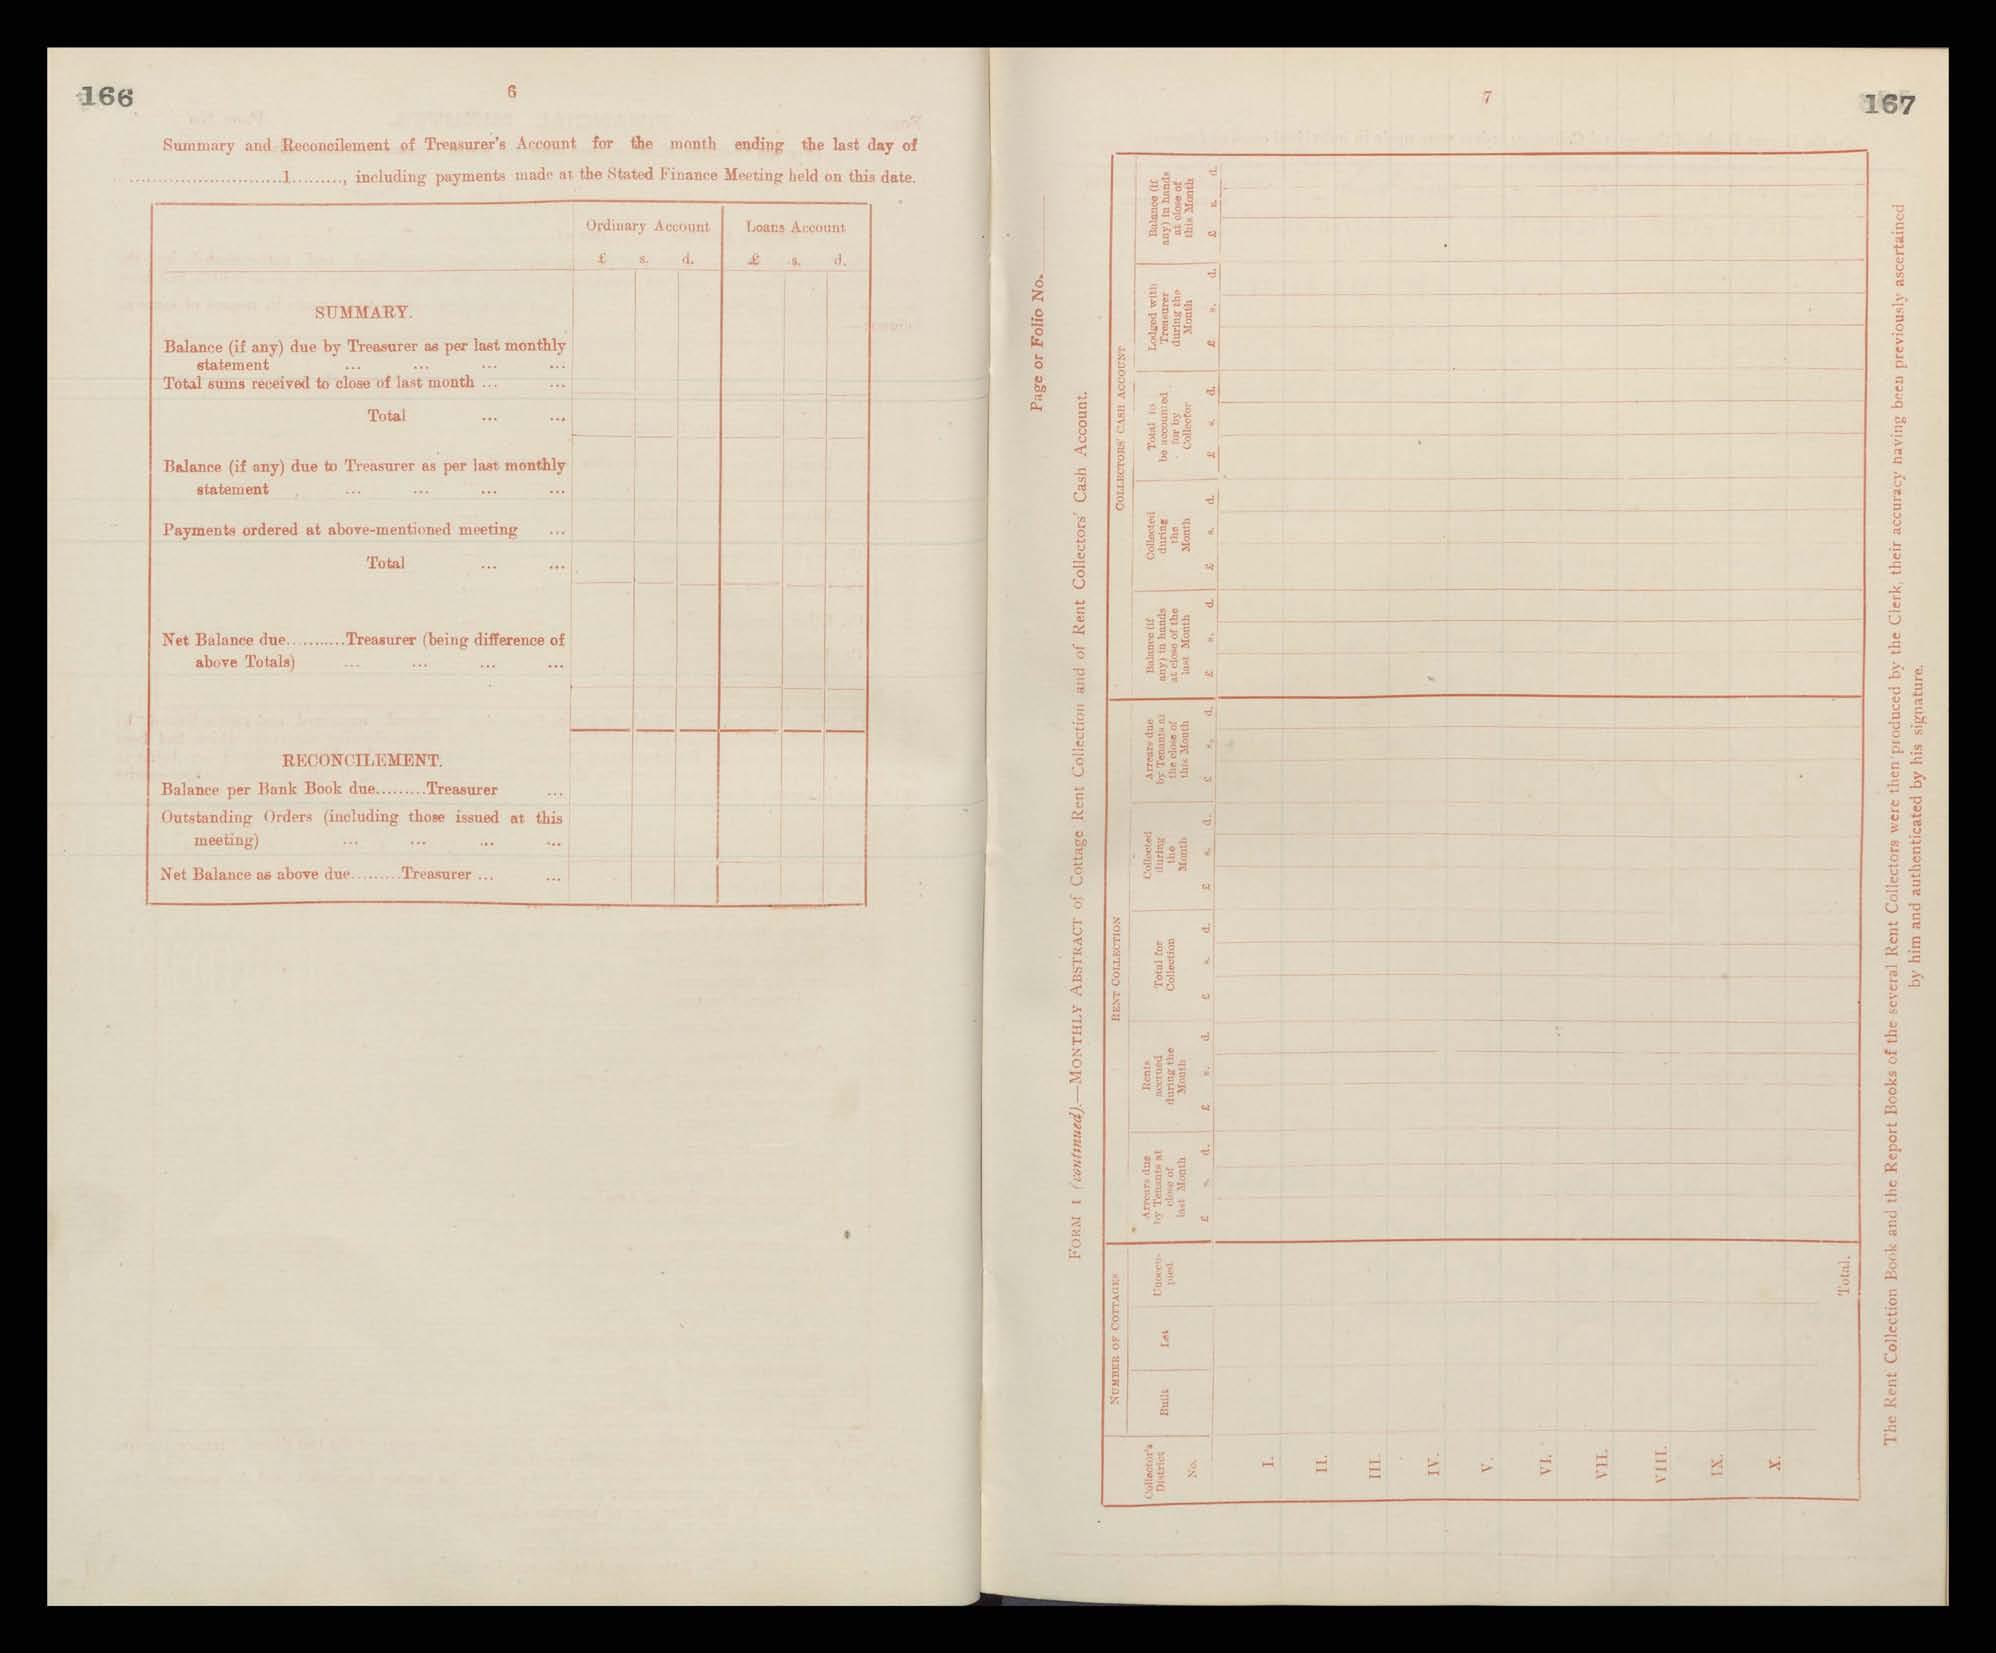 166
6
Summary and Reconcilement of Treasurer's Account for the month ending the last day of
..............................1........., including payments made at the Stated Finance Meeting held on this date.
Ordinary Account
Loans Account
£ s. d.
£ s. d.
SUMMARY.
Balance (if any) due by Treasurer as per last monthly
statement ... ... ... ...
Total sums received to close of last month ... ...
Total ... ...
Balance (if any) due to Treasurer as per last monthly
statement ... ... ... ...
Payments ordered at above-mentioned meeting ...
Total ... ...
Net Balance due...........Treasurer (being difference of
above Totals) ... ... ... ...
RECONCILEMENT.
Balance per Bank Book due.........Treasurer ...
Outstanding Orders (including those issued at this
meeting) ... ... ... ...
Net Balance as above due.........Treasurer ... ...
7
167
Page or Folio No.
FORM 1 (continued).—MONTHLY ABSTRACT of Cottage Rent Collection and of Rent Collectors' Cash Account.
NUMBER OF COTTAGES
RENT COLLECTION
COLLECTORS' CASH ACCOUNT
Collector's
District
No.
Built
Let
Unoccu-
pied
Arrears due
by Tenants at
close of
last Month
£ s. d.
Rents
accrued
during the
Month
£ s. d.
Total for
Collection
£ s. d.
Collected
during
the
Month
£ s. d.
Arrears due
by Tenants at
the close of
this Month
£ s. d.
Balance (if
any) in hands
at close of the
last Month
£ s. d.
Collected
during
the
Month
£ s. d.
Total to
be accounted
for by
Collector
£ s. d.
Lodged with
Treasurer
during the
Month
£ s. d.
Balance (if
any) in hands
at close of
this Month
£ s. d.
I.
II.
III.
IV.
V.
VI.
VII.
VIII.
IX.
X.
Total.
The Rent Collection Book and the Report Books of the several Rent Collectors were then produced by the Clerk, their accuracy having been previously ascertained
by him and authenticated by his signature.